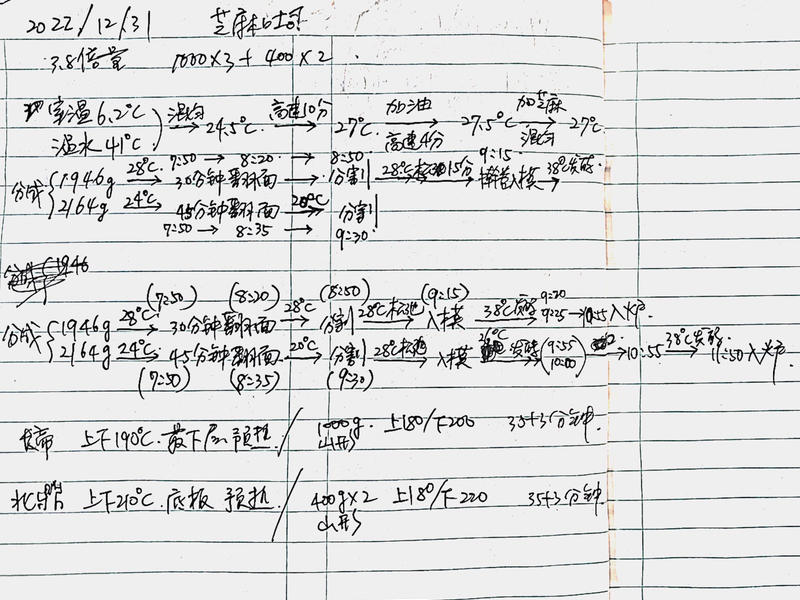 2022/12/31 芝麻吐司
3.8倍量 1000×3+400×2.
室温6.2℃ 温水41℃ 混匀 → 24.5℃ 高速10分 → 27℃ 加油 高速4分 → 27.5℃ 加芝麻 混匀 → 27℃
28℃ 7:50 → 8:20 → 8:50 9:15
分成 1946g → 30分钟翻面 → 分割 28℃松弛15分 → 擀卷入模 38℃发酵 →
2164g 24℃ → 45分钟翻面 20℃ → 分割
7:50 → 8:35 → 9:30
1946
(7:50) (8:20) (8:50) (9:15) 9:20
分成 1946g 28℃ → 30分钟翻面 28℃ → 分割 28℃松弛 → 入模 38℃发酵 9:25 → 10:55入炉
2164g 24℃ → 45分钟翻面 20℃ → 分割 28℃松弛 → 入模 发酵 (9:55 10:00) → 10:55 38℃发酵 → 11:50入炉
(7:50) (8:35) (9:30)
上下190℃.最下层预热 / 1000g.山形 上180/下200 35+3分钟.
上下210℃.底板 预热 / 400g×2 山形 上180/下220 35+3分钟.